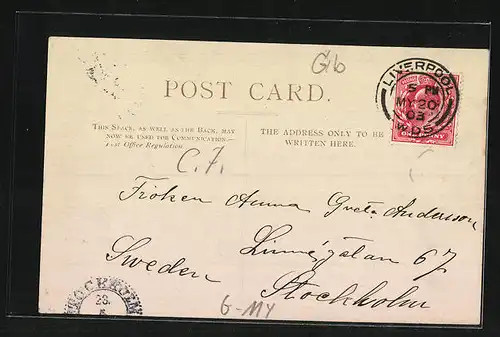 Gb
POST CARD.
LIVERPOOL
5 PM
MY 20
03
W.D.S
THIS SPACE, AS WELL AS THE BACK, MAY
NOW BE USED FOR COMMUNICATION.—
Post Office Regulation.
THE ADDRESS ONLY TO BE
WRITTEN HERE.
C.F.
Fröken Anna Greta Andersson
Linnégatan 67
Sweden
Stockholm
STOCKHOLM
23.
5
G-MY